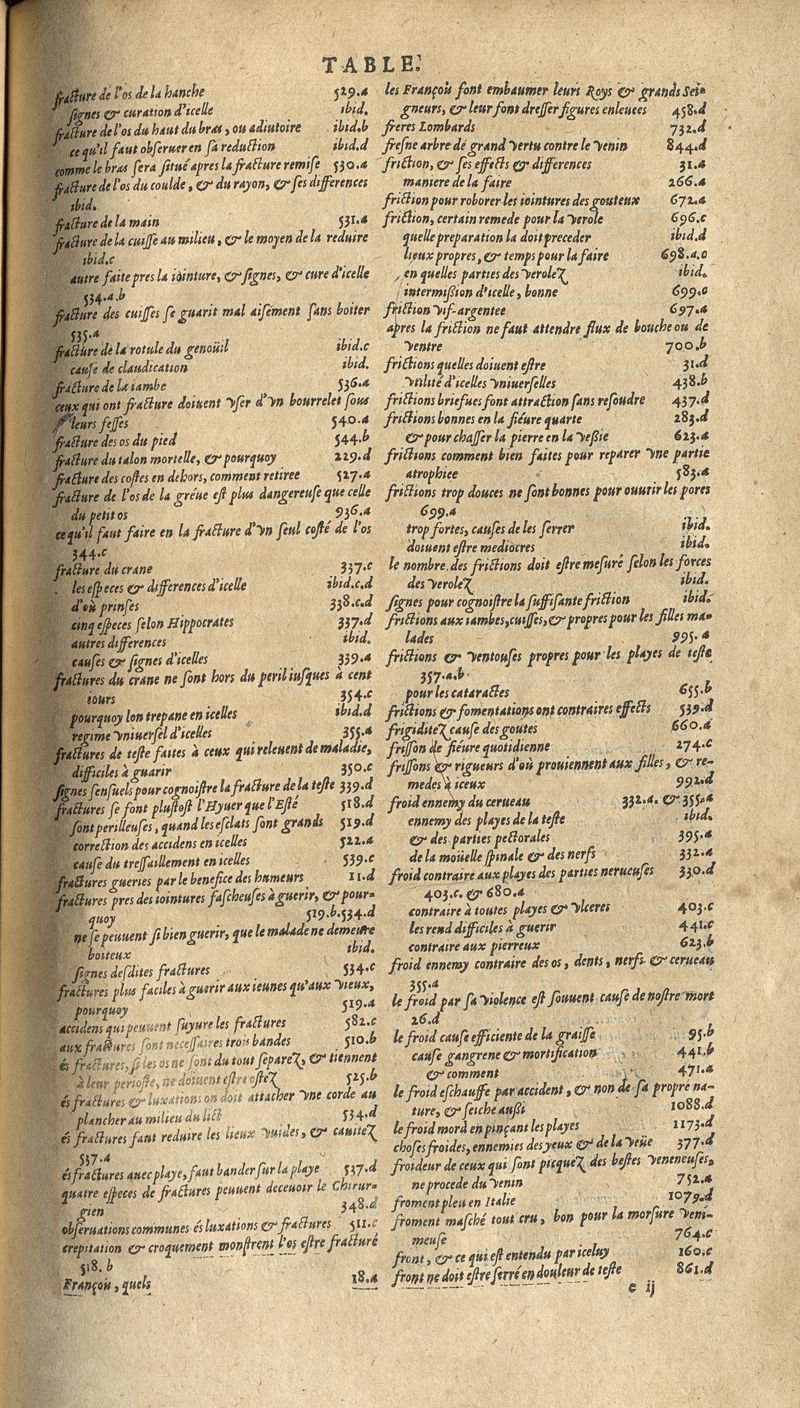 TABLE.
fracture de l'os de la hanche 529.a
signes & curation d'icelle ibid.
fracture de l'os du haut du bras, ou adiutoire ibid.b
ce qu'il faut obseruer en sa reduction ibid.d
comme le bras sera situé apres la fracture remise 530.a
fracture de l'os du coulde, & du rayon, & ses differences
ibid.
fracture de la main 531.a
fracture de la cuisse au milieu, & le moyen de la reduire
ibid.c
autre faite pres la iointure, & signes, & cure d'icelle
534.a.b
fracture des cuisses se guarit mal aisément sans boiter
535.a
fracture de la rotule du genoüil ibid.c
cause de claudication ibid.
fracture de la iambe 536.a
ceux qui ont fracture doiuent vser d'vn bourrelet sous
leurs fesses 540.a
fracture des os du pied 544.b
fracture du talon mortelle, & pourquoy 229.d
fracture des costes en dehors, comment retiree 527.a
fracture de l'os de la gréue est plus dangereuse que celle
du petit os 936.a
ce qu'il faut faire en la fracture d'vn seul costé de l'os
344.c
fracture du crane 337.c
les especes & differences d'icelle ibid.c.d
d'où prinses 338.c.d
cinq especes selon Hippocrates 337.d
autres differences ibid.
causes & signes d'icelles 339.a
fractures du crane ne sont hors du peril iusques à cent
iours 354.c
pourquoy lon trepane en icelles ibid.d
regime vniuersel d'icelles 355.a
fractures de teste faites à ceux qui releuent de maladie,
difficiles à guarir 350.c
signes sensuels pour cognoistre la fracture de la teste 339.d
fractures se font plustost l'Hyuer que l'Esté 518.d
sont perilleuses, quand les esclats sont grands 519.d
correction des accidens en icelles 522.a
cause du tressaillement en icelles 539.c
fractures gueries par le benefice des humeurs 11.d
fractures pres des iointures fascheuses à guerir, & pour-
quoy 519.b.534.d
ne se peuuent si bien guerir, que le malade ne demeure
boiteux ibid.
signes desdites fractures 534.c
fractures plus faciles à guerir aux ieunes qu'aux vieux,
pourquoy 519.a
accidens qui peuuent suyure les fractures 582.c
aux fractures sont necessaires trois bandes 510.b
és fractures, si les os ne sont du tout separez, & tiennent
à leur perioste, ne doiuent estre ostez 525.b
és fractures & luxations on doit attacher vne corde au
plancher au milieu du lict 534.d
és fractures faut reduire les lieux vuides, & cauitez
537.a
és fractures auec playe, faut bander sur la playe 537.d
quatre especes de fractures peuuent deceuoir le Chirur-
gien 348.d
obseruations communes és luxations & fractures 511.c
crepitation & croquement monstrent l'os estre fracturé
518.b
François, quels 18.a
les François font embaumer leurs Roys & grands Sei-
gneurs, & leur font dresser figures enleuees 458.d
freres Lombards 732.d
fresne arbre de grand vertu contre le venin 844.d
friction, & ses effects & differences 31.a
maniere de la faire 266.a
friction pour roborer les iointures des gouteux 672.a
friction, certain remede pour la verole 696.c
quelle preparation la doit preceder ibid.d
lieux propres, & temps pour la faire 698.a.c
en quelles parties des verolez ibid.
intermißion d'icelle, bonne 699.c
friction vif-argentee 697.a
apres la friction ne faut attendre flux de bouche ou de
ventre 700.b
frictions quelles doiuent estre 31.d
vtilité d'icelles vniuerselles 438.b
frictions briefues font attraction sans resoudre 437.d
frictions bonnes en la fiéure quarte 283.d
& pour chasser la pierre en la veßie 623.a
frictions comment bien faites pour reparer vne partie
atrophiee 583.a
frictions trop douces ne sont bonnes pour ouurir les pores
699.a
trop fortes, causes de les serrer ibid.
doiuent estre mediocres ibid.
le nombre des frictions doit estre mesuré selon les forces
des verolez ibid.
signes pour cognoistre la suffisante friction ibid.
frictions aux iambes, cuisses, & propres pour les filles ma-
lades 995.a
frictions & ventouses propres pour les playes de teste
357.a.b
pour les cataractes 655.b
frictions & fomentations ont contraires effects 539.d
frigiditez cause des goutes 660.a
frisson de fiéure quotidienne 274.c
frissons & rigueurs d'où prouiennent aux filles, & re-
medes à iceux 992.d
froid ennemy du cerueau 332.a. & 355.a
ennemy des playes de la teste ibid.
& des parties pectorales 395.a
de la moüelle spinale & des nerfs 332.a
froid contraire aux playes des parties nerueuses 330.d
403.c. & 680.a
contraire à toutes playes & vlceres 403.c
les rend difficiles à guerir 441.c
contraire aux pierreux 623.b
froid ennemy contraire des os, dents, nerfs & cerueau
355.a
le froid par sa violence est souuent cause de nostre mort
26.d
le froid cause efficiente de la graisse 95.b
cause gangrene & mortification 441.b
& comment 471.a
le froid eschauffe par accident, & non de sa propre na-
ture, & seiche außi 1088.d
le froid mord en pinçant les playes 1173.d
choses froides, ennemies des yeux & de la veüe 377.d
froideur de ceux qui sont picquez des bestes veneneuses,
ne procede du venin 752.a
froment pleu en Italie 1079.d
froment masché tout cru, bon pour la morsure veni-
meuse 764.c
front, & ce qui est entendu par iceluy 160.c
front ne doit estre serré en douleur de teste 861.d
e ij